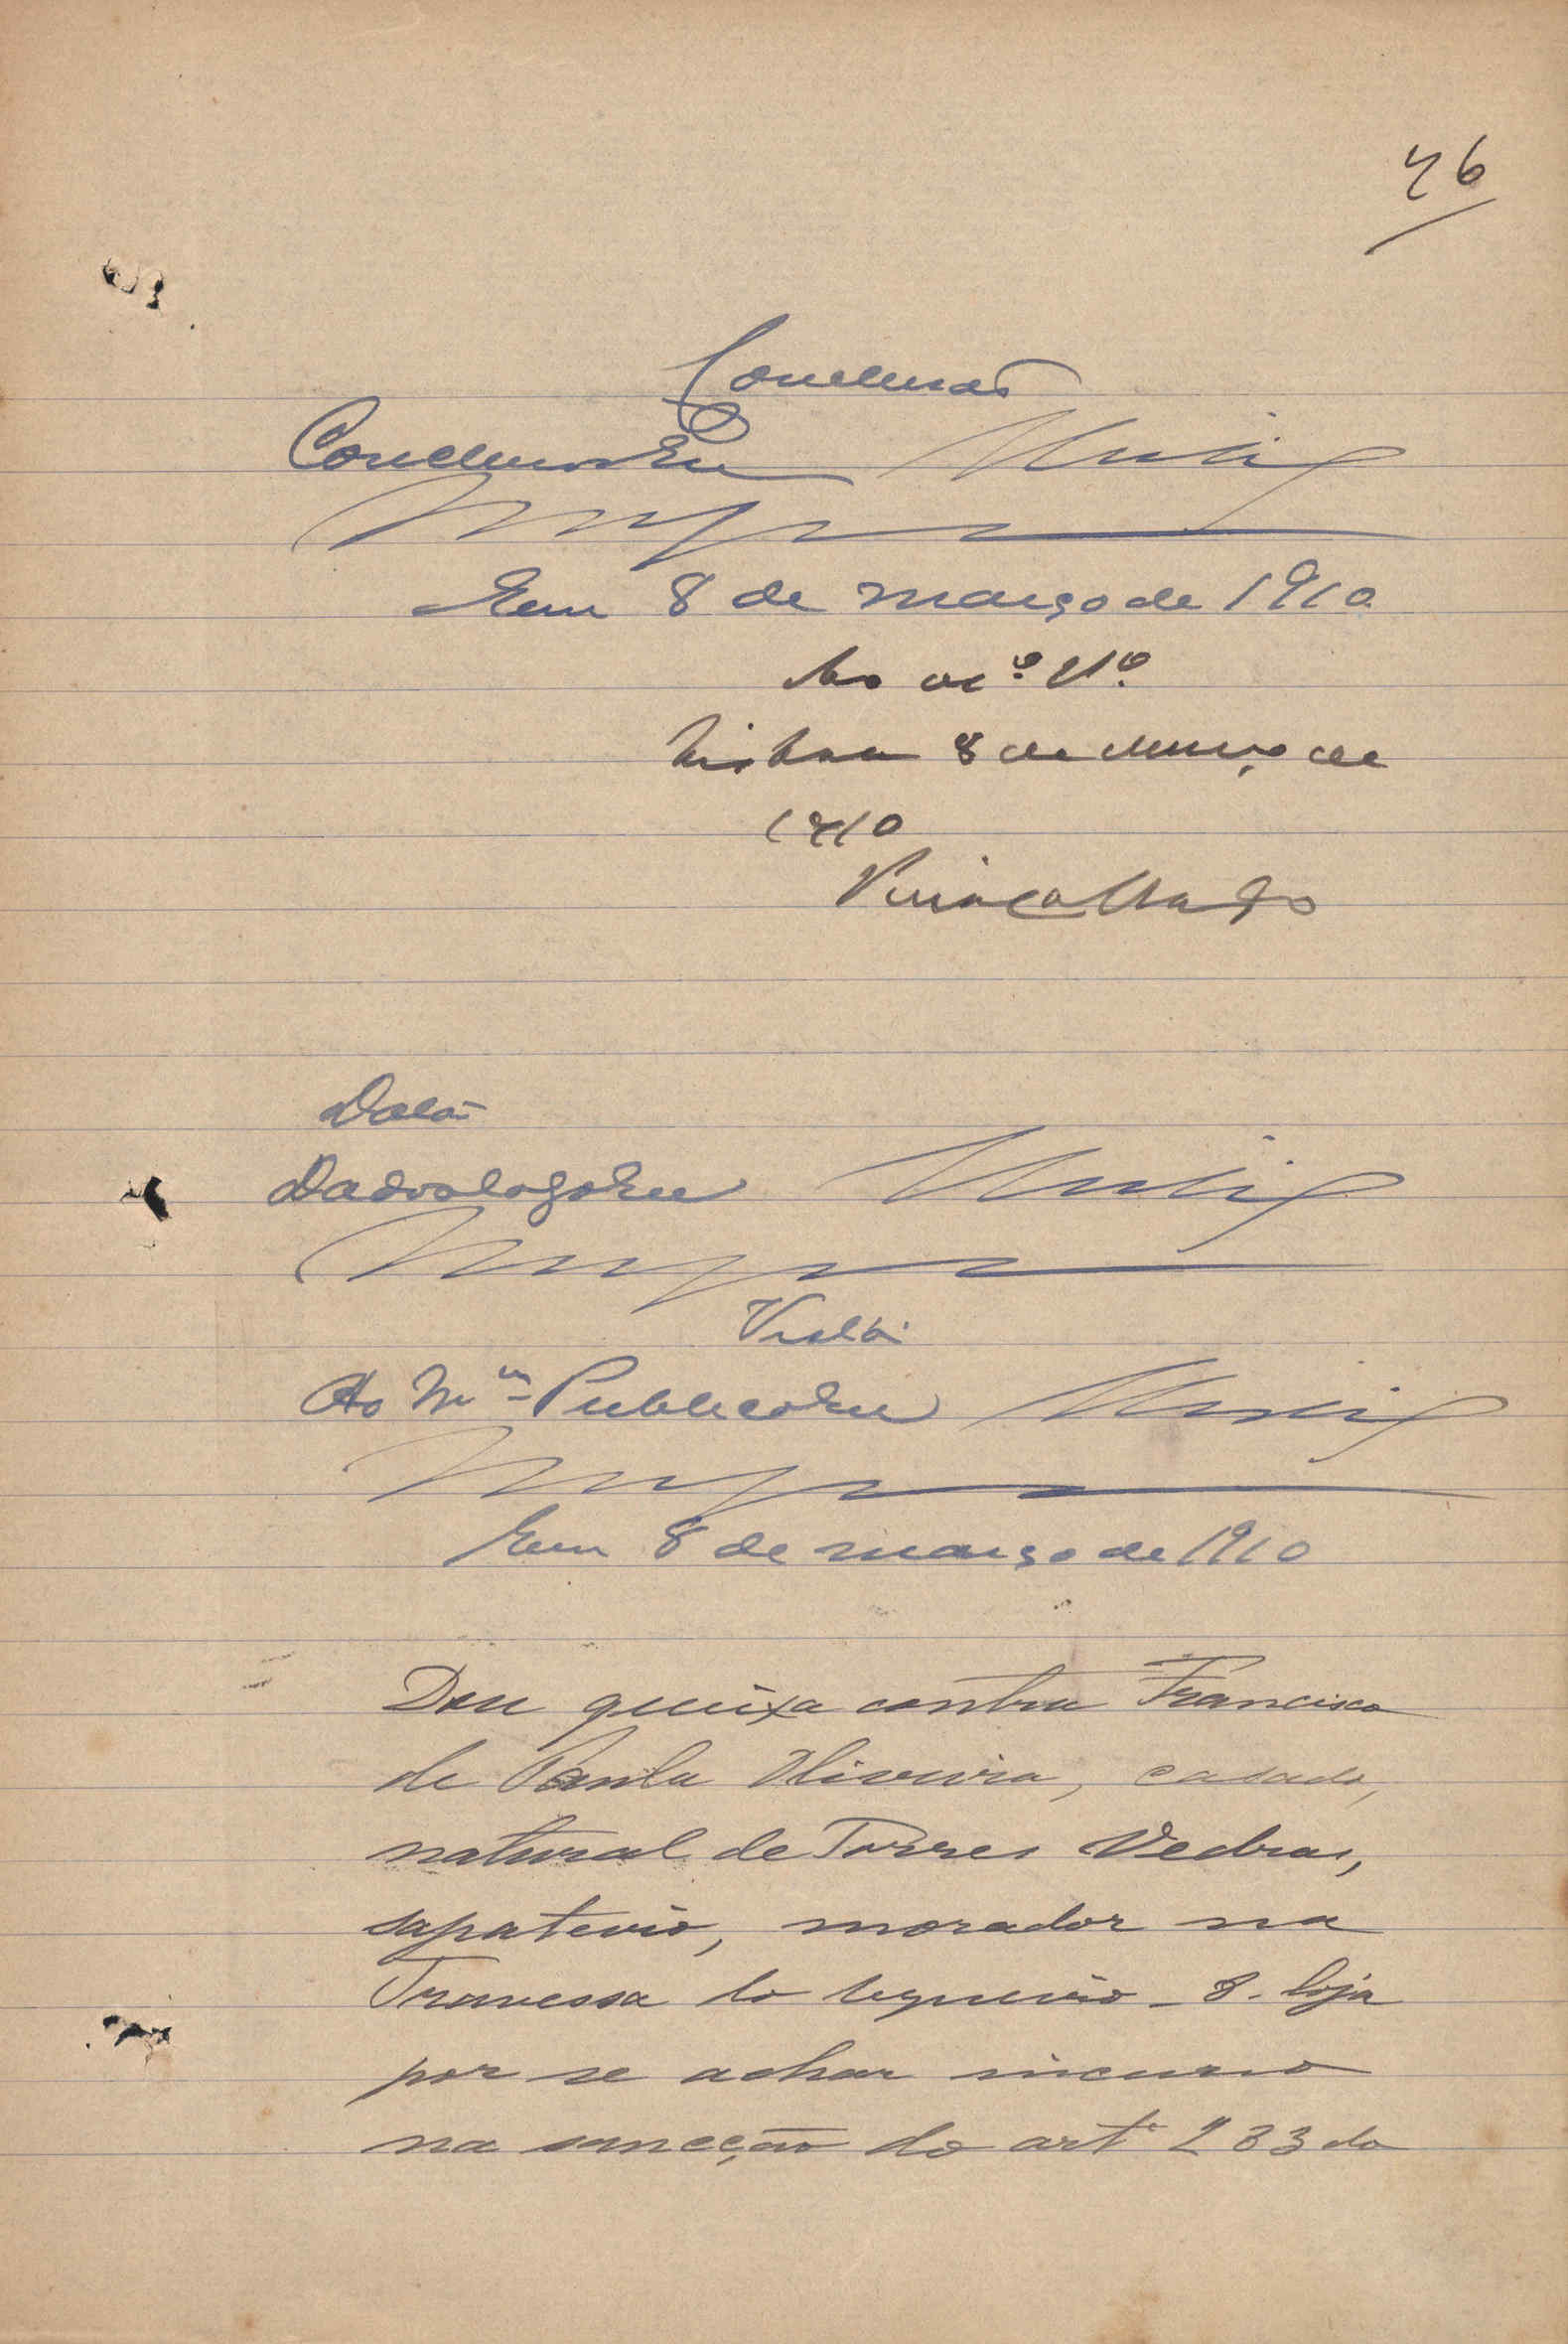 46
Conclusão
Conclusos Eu
Em 8 de março de 1910
Ao M.º P.º
Lisboa 8 de Março de
1910
Data
Dada logo Eu
Vista
Ao M.º Publico Eu
Em 8 de março de 1910
Dou queixa contra Francisco
de Paula Oliveira, casado,
natural de Torres Vedras,
sapateiro, morador na
Travessa do 8. loja
por se achar incurso
na sancção do art.º 233 do